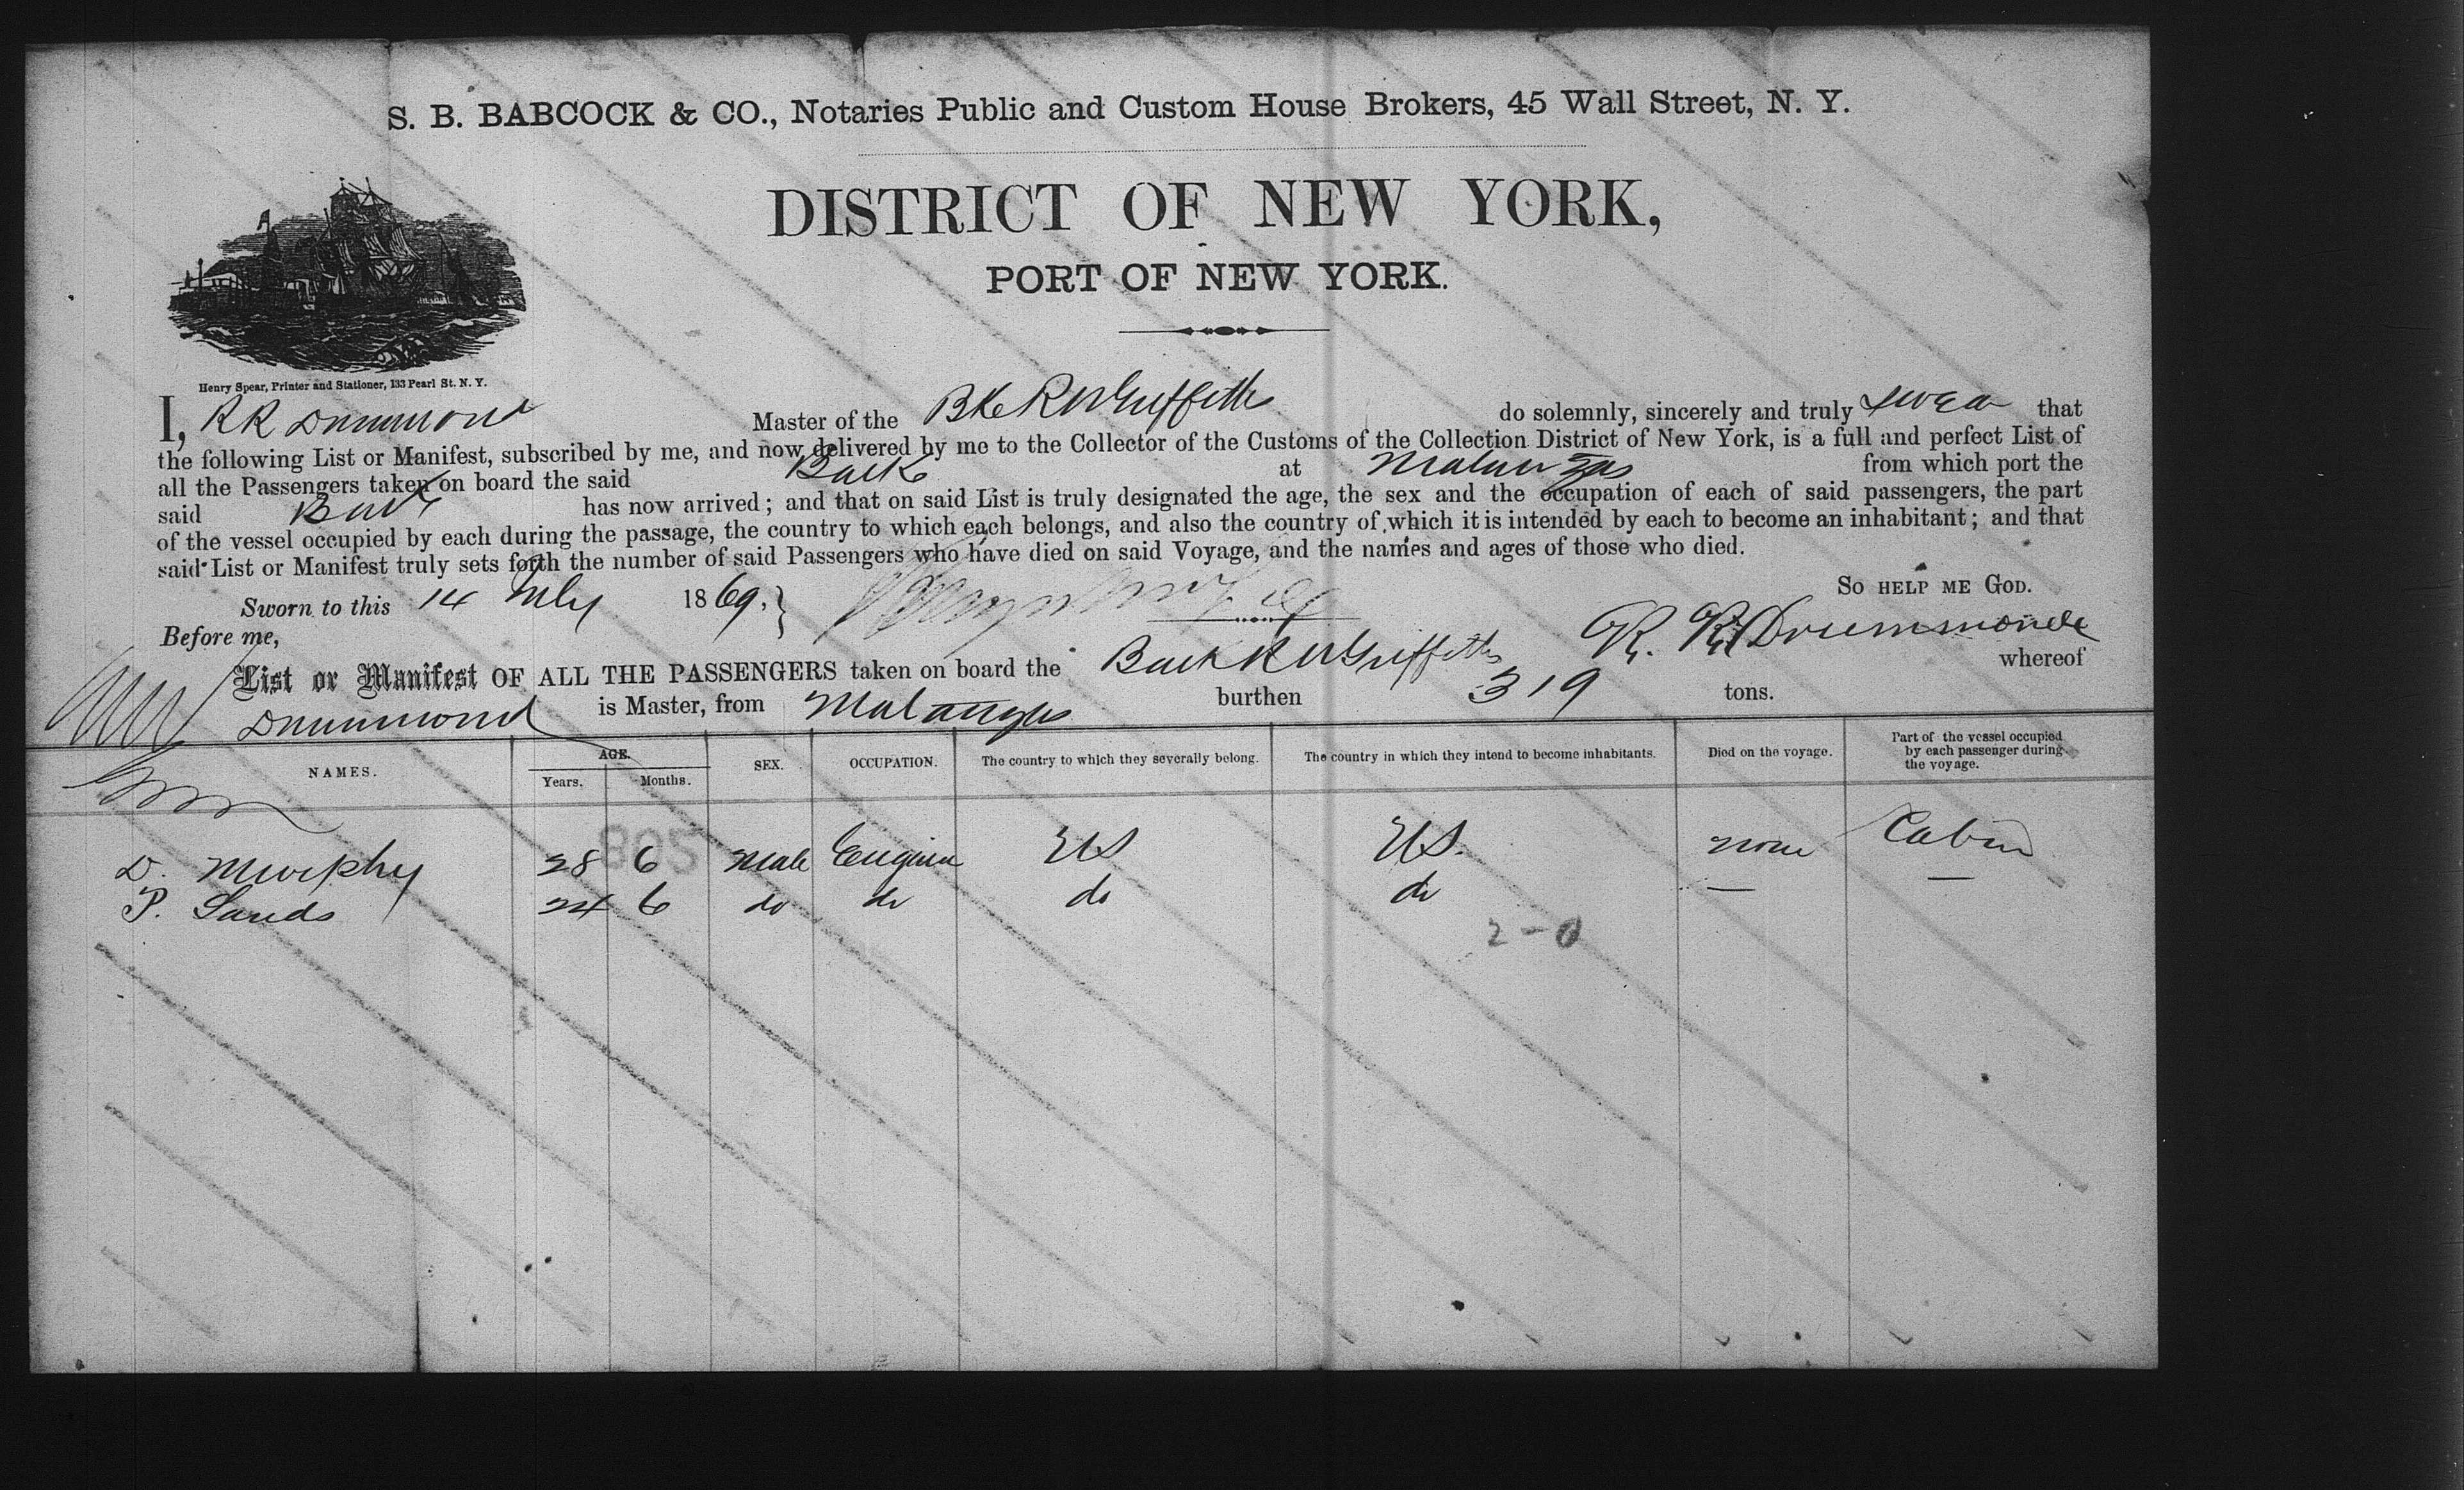 S. B. BABCOCK & CO., Notaries Public and Custom House Brokers, 45 Wall Street, N. Y.
DISTRICT OF NEW YORK,
PORT OF NEW YORK.
Henry Spear, Printer and Stationer, 133 Pearl St. N. Y.
I, R R Drummond Master of the Bk R W Griffiths do solemnly, sincerely and truly swear that
the following List or Manifest, subscribed by me, and now delivered by me to the Collector of the Customs of the Collection District of New York, is a full and perfect List of
all the Passengers taken on board the said Bark at Matanzas from which port the
said Bark has now arrived; and that on said List is truly designated the age, the sex and the occupation of each of said passengers, the part
of the vessel occupied by each during the passage, the country to which each belongs, and also the country of which it is intended by each to become an inhabitant; and that
said List or Manifest truly sets forth the number of said Passengers who have died on said Voyage, and the names and ages of those who died.
So help me God.
Sworn to this 14 July 1869,
R. R. Drummond
Before me,
List or Manifest OF ALL THE PASSENGERS taken on board the Bark R W Griffiths whereof
Drummond is Master, from Matanzas burthen 319 tons.
NAMES. AGE. Years. Months. SEX. OCCUPATION. The country to which they severally belong. The country in which they intend to become inhabitants. Died on the voyage. Part of the vessel occupied by each passenger during the voyage.
805
D. Murphy 28 6 Male US US. none Cabin
P. Sands 24 6 do do do do — —
2-0